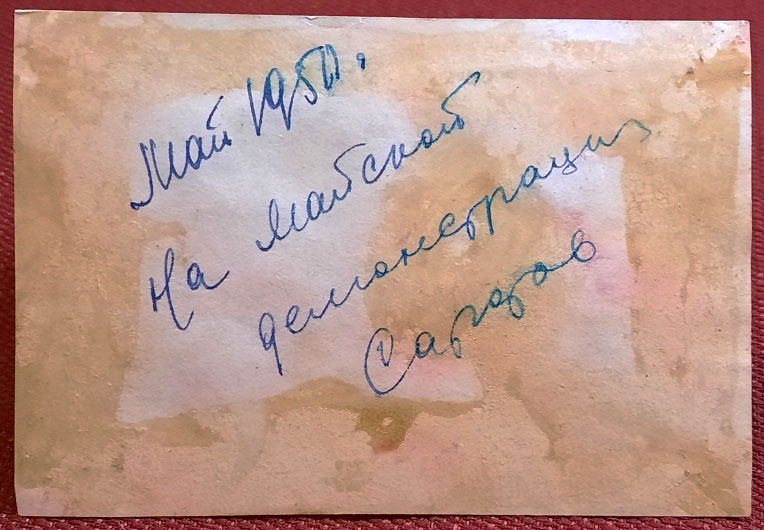 Май 1950.
На майской
демонстрации
Саратов